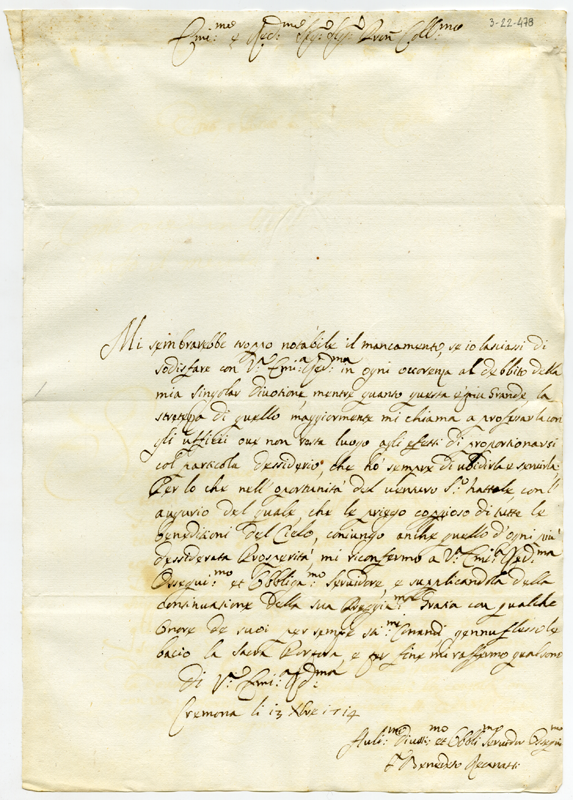 3-22-478
Emi:mo e Rev:mo Sig:r Sig:r Pron Coll:mo
Mi sembrarebbe troppo notabile il mancamento, se io lasciassi di
sodisfare con V:ra Emi:a Rev:ma in ogni occorenza al debbito della
mia singolar divotione mentre quanto questa è più Grande la
di quello maggiormente mi chiama a professarla con
gli ufficii ove non resta luogo agli effetti di proportionarsi
col particola dessiderio, che hò sempre di ubidirla e servirla
Per lo che nell'oportunità del venturo S:to Nattale con l'
augurio del quale, che le priego coppioso di tutte le
benedizioni del Cielo, coniungo anche quello d'ogni più
dessiderata Prosperità, mi riconfermo a V:ra Emi:a Rev:ma
Ossequi:mo et Obbliga:mo Servidore, e supplicandola della
continuatione della sua Grazia con qualche
onore de suoi per sempre sti:mi Comandi gennuflesso le
bacio la Sacra Porpora, e per fine mi rassegno qual sono
Di V:ra Emi:a Rev:ma
Cremona li 13 Xbre 1714
Humil:mo Divott:mo et Obbli:mo Servidor Osseq:mo
F. Benedetto Recanati